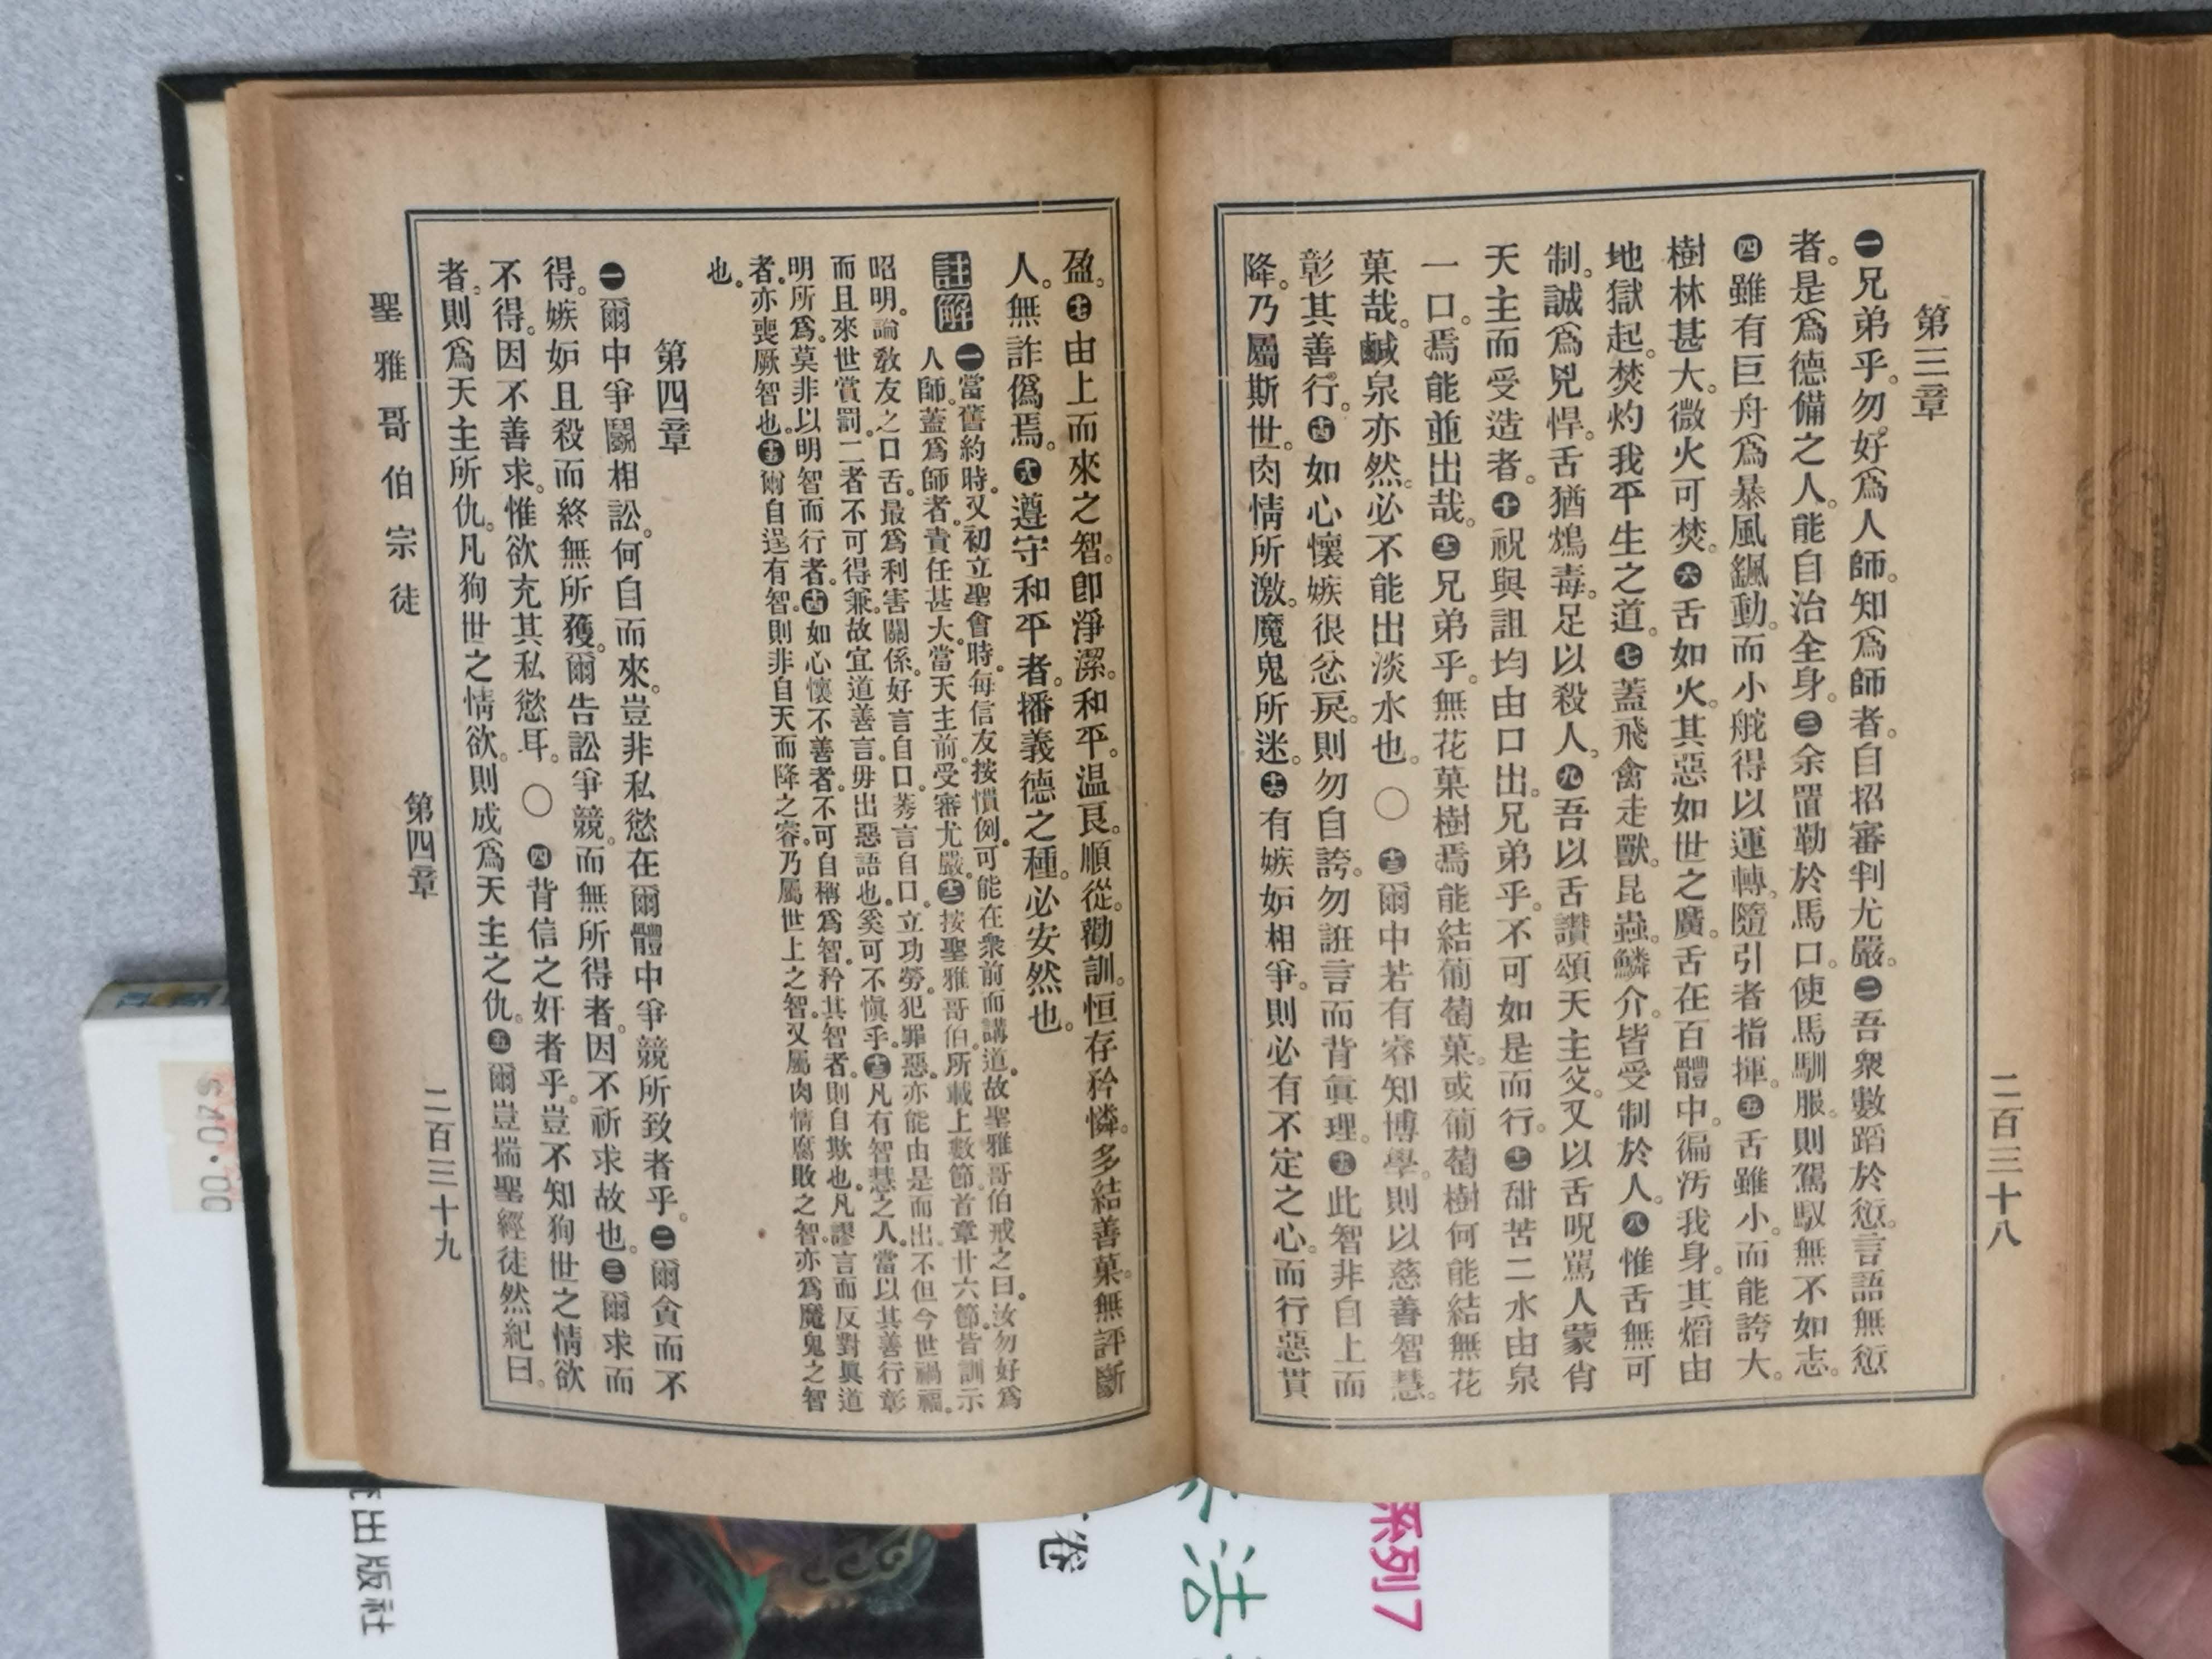 第三章
㊀兄弟乎。勿好爲人師。知爲師者。自招審判尤嚴。㊁吾衆數蹈於愆。言語無愆
者。是爲德備之人。能自治全身。㊂余罝勒於馬口。使馬馴服。則駕馭無不如志。
㊃雖有巨舟爲暴風飄動。而小舵得以運轉。隨引者指揮。㊄舌雖小。而能誇大。
樹林甚大。微火可焚。㊅舌如火。其惡如世之廣。舌在百體中。徧汚我身。其熖由
地獄起。焚灼我平生之道。㊆蓋飛禽走獸。昆蟲。鱗介。皆受制於人。㊇惟舌無可
制。誠爲兇悍。舌猶鴆毒。足以殺人。㊈吾以舌讚頌天主父。又以舌呪駡人蒙肖
天主而受造者。㊉祝與詛均由口出。兄弟乎。不可如是而行。⓫甜苦二水由泉
一口。焉能並出哉。⓬兄弟乎。無花菓樹焉能結葡萄菓。或葡萄樹何能結無花
菓哉。鹹泉亦然。必不能出淡水也。〇⓭爾中若有睿知博學。則以慈善智慧。
彰其善行。⓮如心懷嫉很忿戾。則勿自誇。勿誑言而背眞理。⓯此智非自上而
降。乃屬斯世。肉情所激。魔鬼所迷。⓰有嫉妒相爭。則必有不定之心。而行惡貫
二百三十八
盈。⓱由上而來之智。卽淨潔。和平。温良。順從。勸訓。恒存矜憐。多結善菓。無評斷
人。無詐僞焉。⓲遵守和平者。播義德之種。必安然也。
註解 ㊀當舊約時。又初立聖會時。每信友按慣例。可能在衆前而講道。故聖雅哥伯戒之曰。汝勿好爲
人師。蓋爲師者。責任甚大。當天主前。受審尤嚴。⓬按聖雅哥伯。所載上數節。首章廿六節。皆訓示
昭明。論敎友之口舌。最爲利害關係。好言自口。莠言自口。立功勞。犯罪惡。亦能由是而出。不但今世禍福。
而且來世賞罰。二者不可得兼。故宜道善言。毋出惡語也。奚可不愼乎。⓭凡有智慧之人。當以其善行彰
明所爲。莫非以明智而行者。⓮如心懷不善者。不可自稱爲智。矜其智者。則自欺也。凡謬言而反對眞道
者。亦喪厥智也。⓯爾自逞有智。則非自天而降之睿。乃屬世上之智。又屬肉情腐敗之智。亦爲魔鬼之智
也。
第四章
㊀爾中爭鬬相訟。何自而來。豈非私慾在爾體中爭競所致者乎。㊁爾貪而不
得。嫉妒且殺而終無所獲。爾告訟爭競。而無所得者。因不祈求故也。㊂爾求而
不得。因不善求。惟欲充其私慾耳。〇㊃背信之奸者乎。豈不知狥世之情欲
者。則爲天主所仇。凡狥世之情欲。則成爲天主之仇。㊄爾豈揣聖經徒然紀曰。
聖雅哥伯宗徒 第四章 二百三十九
$40.00
出版社
卷
法
系列7